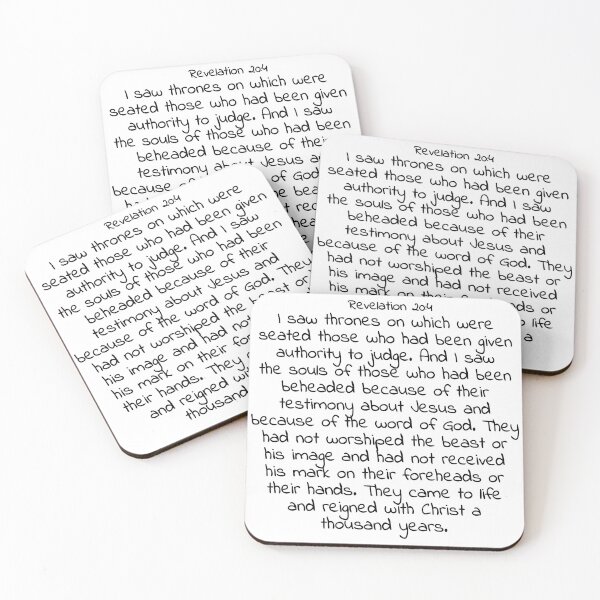 Revelation 204
I saw thrones on which were
seated those who had been given
authority to judge. And I saw
the souls of those who had been
beheaded because of their
testimony about Jesus
because of
Revelation 204
I saw thrones on which were
seated those who had been given
authority to judge. And I saw
the souls of those who had been
beheaded because of their
testimony about Jesus and
because of the word of God. They
had not worshiped the beast or
his image and had not received
his mark on their foreheads or
to life
a
Revelation 204
I saw thrones on which were
seated those who had been given
authority to judge. And I saw
the souls of those who had been
beheaded because of their
testimony about Jesus and
because of the word of God. They
had not worshiped the beast or
his image and had not
his mark on their
their hands. They
and reigned
thousand
Revelation 204
I saw thrones on which were
seated those who had been given
authority to judge. And I saw
the souls of those who had been
beheaded because of their
testimony about Jesus and
because of the word of God. They
had not worshiped the beast or
his image and had not received
his mark on their foreheads or
their hands. They came to life
and reigned with Christ a
thousand years.